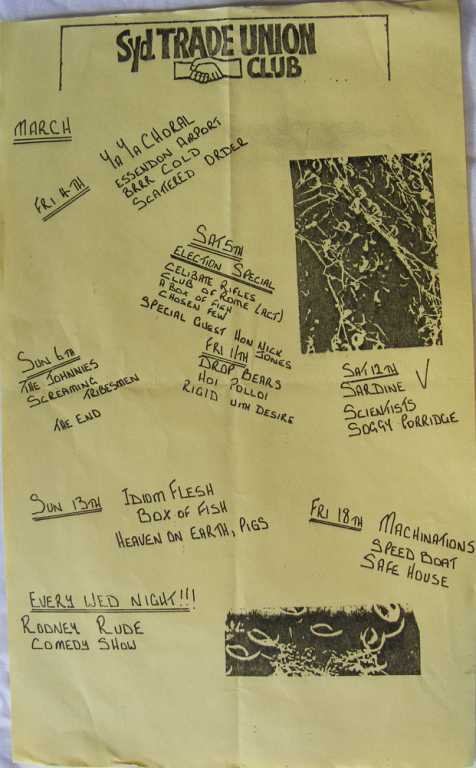 Syd. TRADE UNION
CLUB
MARCH
FRI 4TH
YA YA CHORAL
ESSENDON AIRPORT
BRRR COLD
SCATERED ORDER
SAT 5TH
ELECTION SPECIAL
CELIBATE RIFLES
CLUB OF ROME (ACT)
A BOX OF FISH
CHOSEN FEW
SPECIAL GUEST HON NICK
JONES
SUN 6TH
THE JOHNNIES
SCREAMING TRIBESMEN
THE END
FRI 11TH
DROP BEARS
HOI POLLOI
RIGID WITH DESIRE
SAT 12TH
SARDINE V
SCIENTISTS
SOGGY PORRIDGE
SUN 13TH
IDIOM FLESH
BOX OF FISH
HEAVEN ON EARTH, PIGS
FRI 18TH
MACHINATIONS
SPEED BOAT
SAFE HOUSE
EVERY WED NIGHT!!!
RODNEY RUDE
COMEDY SHOW